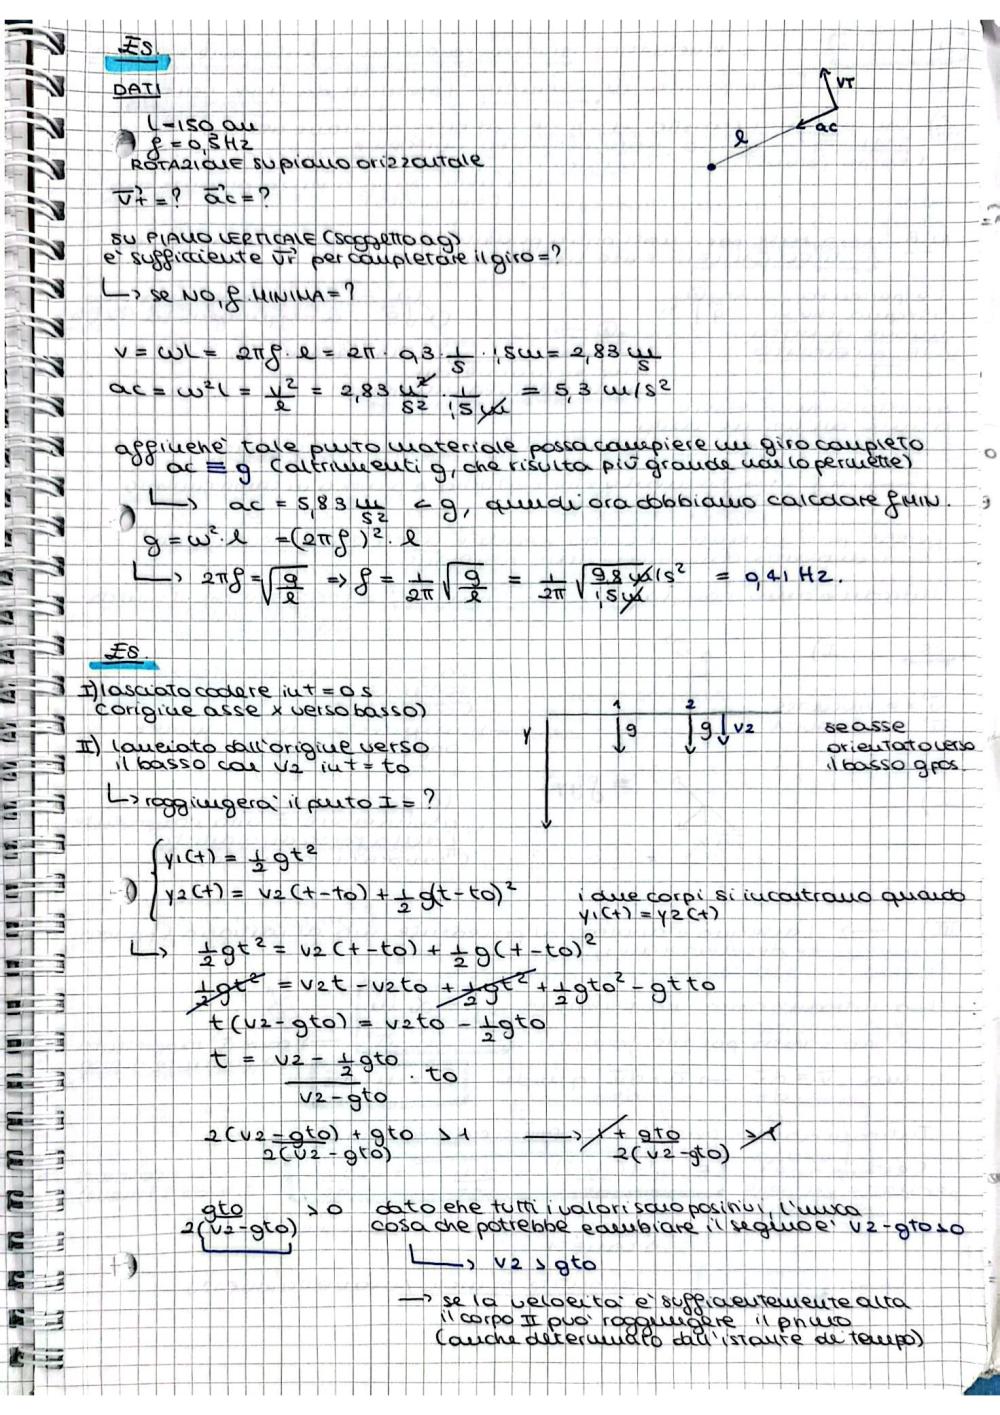 ES.
DATI
l=150 cm
f = 0,3 Hz
ROTAZIONE su piano orizzontale
vT = ? ac = ?
SU PIANO VERTICALE (soggetto a g)
è sufficiente vT per completare il giro = ?
↳ se NO, f MINIMA = ?
vT
ac
l
v = ωL = 2πf · l = 2π · 0,3 1/s · 1,5m = 2,83 m/s
ac = ω²l = v²/l = 2,83 m²/s² · 1/1,5 m = 5,3 m/s²
affinché tale punto materiale possa compiere un giro completo
ac ≡ g (altrimenti g, che risulta più grande non lo permette)
↳ ac = 5,83 m/s² < g, quindi ora dobbiamo calcolare f MIN.
g = ω² · l = (2πf)² · l
↳ 2πf = √g/l ⇒ f = 1/2π √g/l = 1/2π √9,8 m/s² / 1,5 m = 0,41 Hz.
ES.
I) lasciato cadere in t = 0 s
(origine asse x verso basso)
II) lanciato dall'origine verso
il basso con v2 in t = t0
↳ raggiungerà il punto I = ?
1 2
y g g v2
se asse
orientato verso
il basso g pos.
y1(t) = 1/2 gt²
y2(t) = v2(t-t0) + 1/2 g(t-t0)²
i due corpi si incontrano quando
y1(t) = y2(t)
↳ 1/2 gt² = v2(t-t0) + 1/2 g(t-t0)²
1/2 gt² = v2t - v2t0 + 1/2 gt² + 1/2 gt0² - gtt0
t(v2-gt0) = v2t0 - 1/2 gt0
t = v2 - 1/2 gt0 / v2-gt0 · t0
2(v2-gt0) + gt0 / 2(v2-gt0) > 1 → 1 + gt0 / 2(v2-gt0) > 1
gt0 / 2(v2-gt0) > 0 dato che tutti i valori sono positivi, l'unica
cosa che potrebbe cambiare il segno è v2-gt0>0
↳ v2 > gt0
→ se la velocità è sufficientemente alta
il corpo II può raggiungere il primo
(anche determinato dall'istante di tempo)